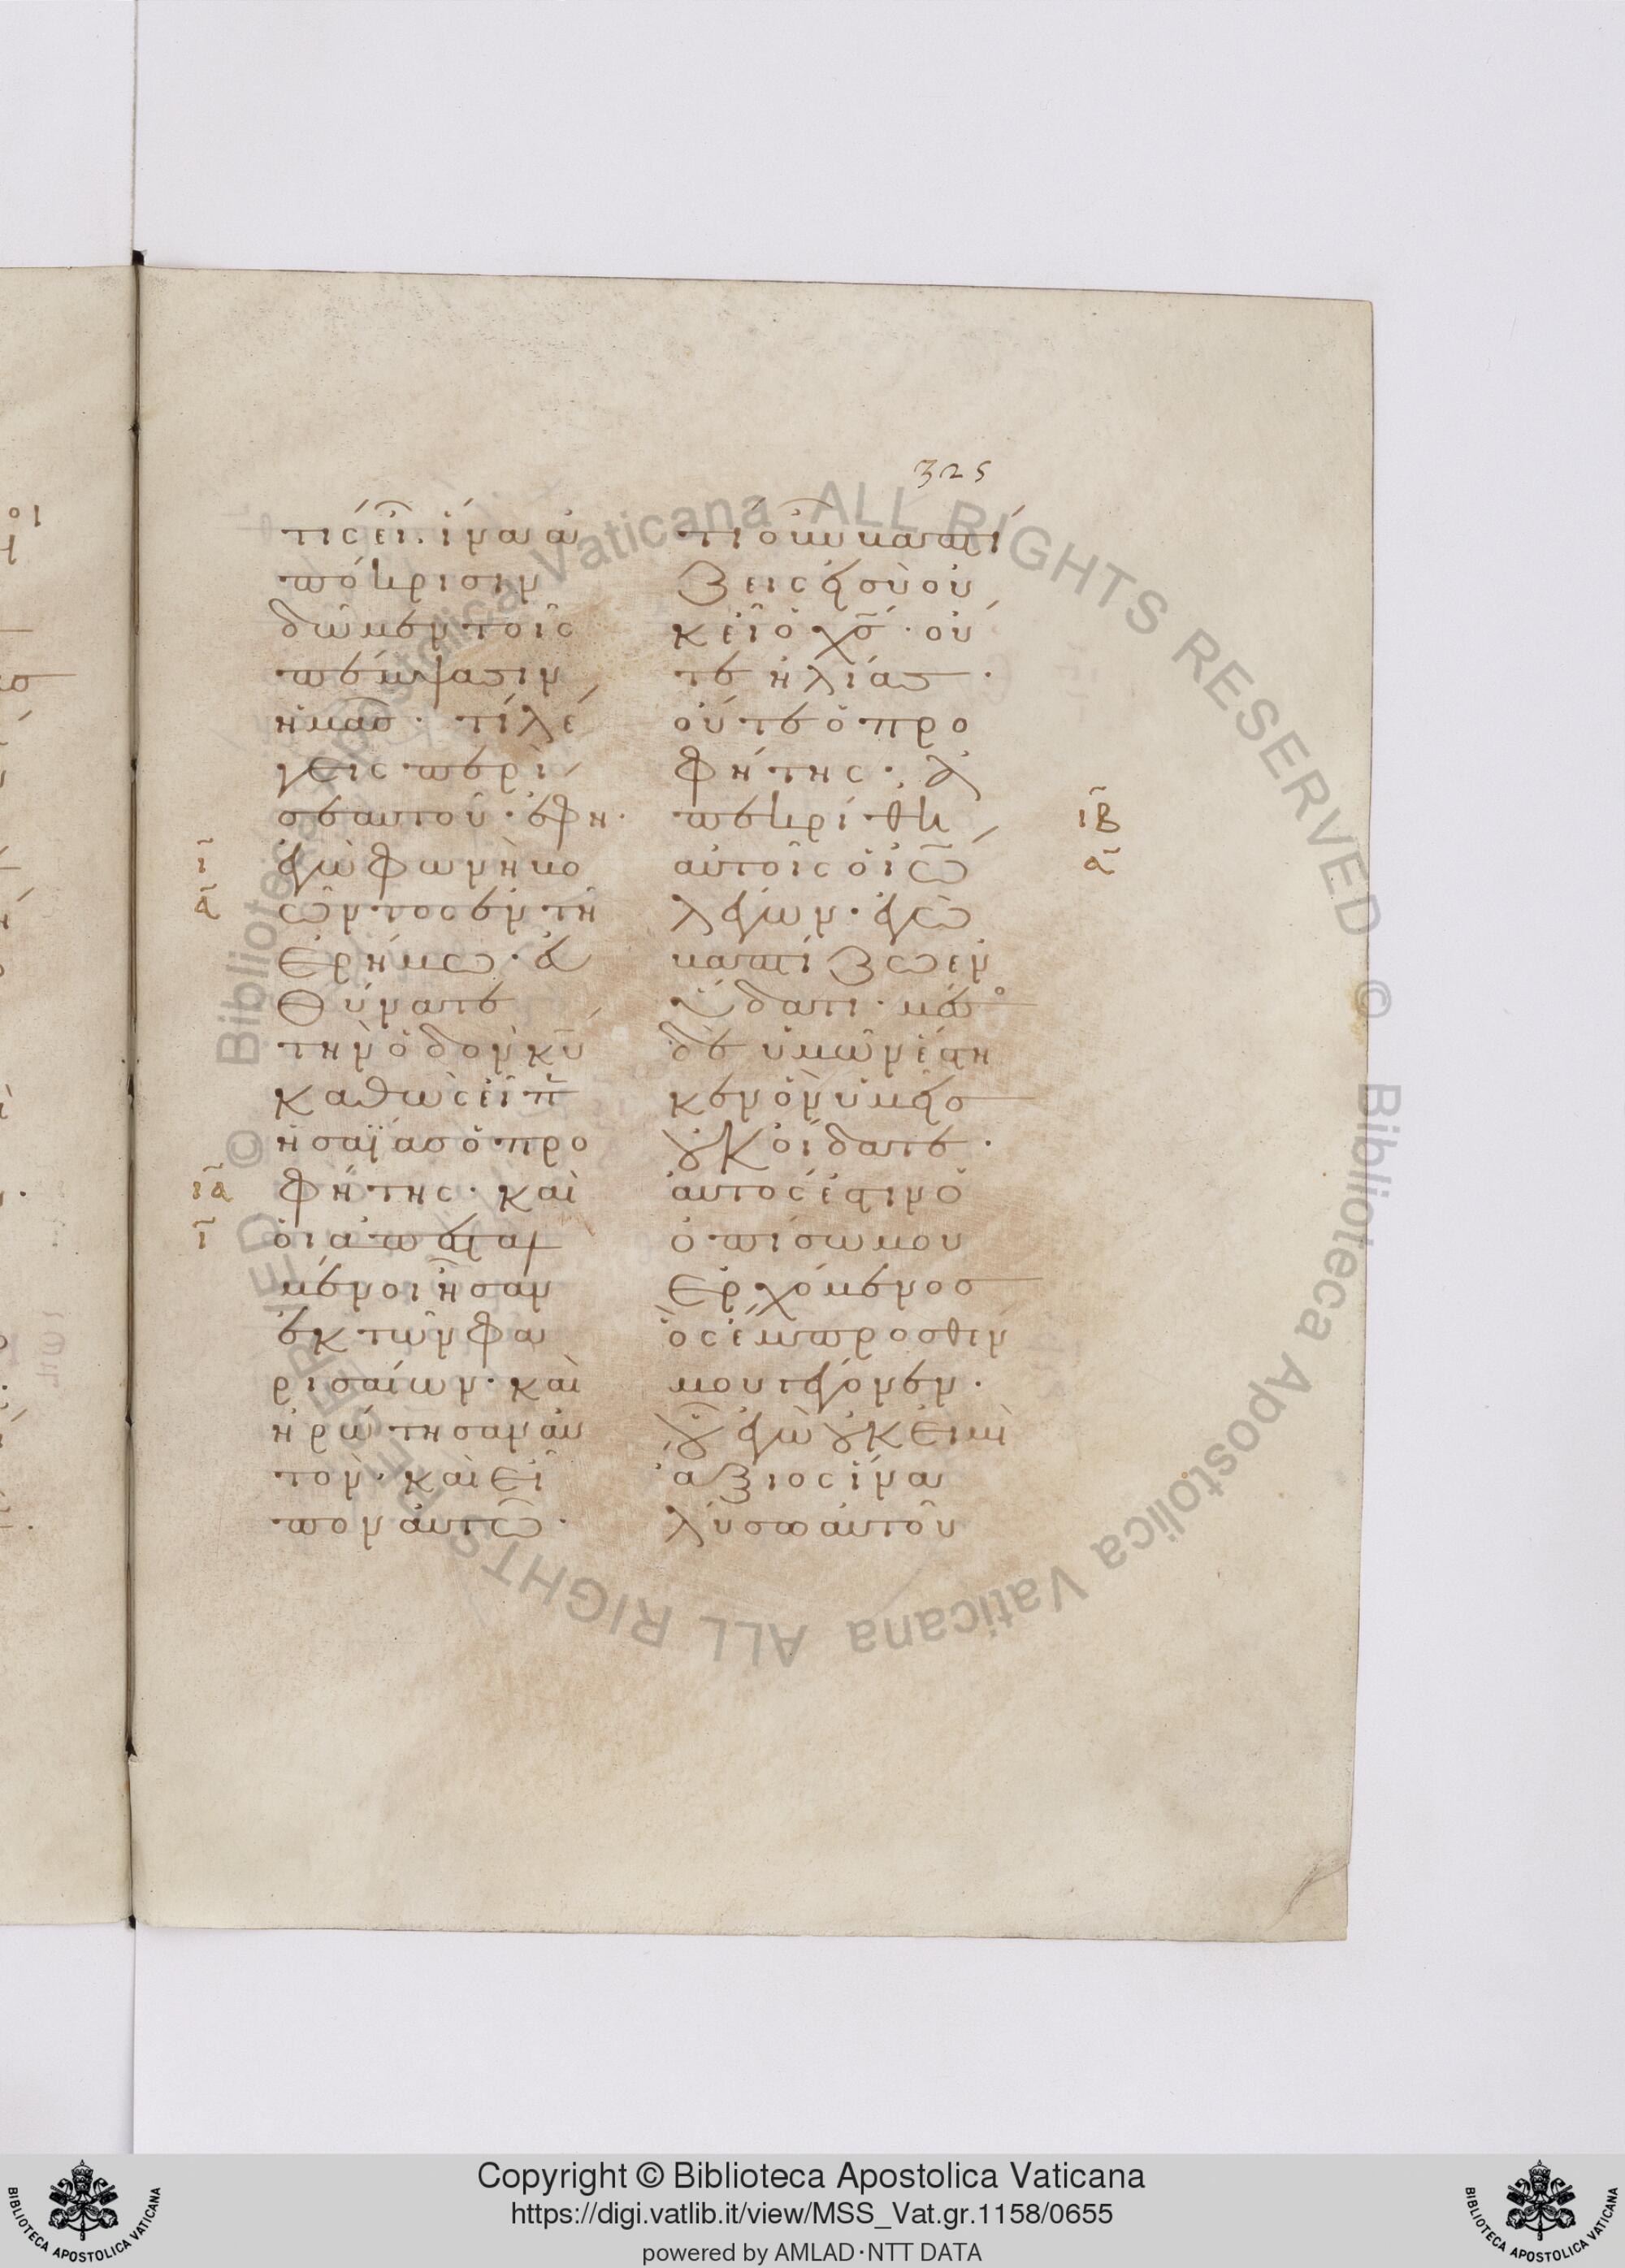 325
τίς εἶ. ἵνα ἀ
πόκρισιν
δῶμεν τοῖς
πέμψασιν
ἡμᾶσ· τί λέ
γεις περὶ
σεαυτοῦ· ἔφη·
ι̅
ἐγὼ φωνὴ βο
α̅
ῶντος ἐν τῆ
ἐρήμω· εὐ
θύνατε
τὴν ὁδὸν κ̅υ̅
καθὼς εἶπ
ἡσαΐασ ὁ προ
ι̅α̅
φήτης· καὶ
ι̅
οἱ ἀπεσταλ
μένοι ἦσαν
ἐκ τῶν φα
ρισαίων· καὶ
ἠρώτησαν αὐ
τὸν· καὶ εἶ
πον αὐτῶ·
τί οὖν βαπτί
ζεις εἰ σὺ οὐ
κ εἶ ὁ χ̅σ̅· οὔ
τε ἡλίασ·
οὔτε ὁ προ
φήτης· ἀ
πεκρίθη
ι̅β̅
αὐτοῖς ὁ ἰω̅
α̅
λέγων· ἐγὼ
βαπτίζω ἐν
ὕδατι· μέσο
δὲ ὑμῶν ἕστη
κεν ὃν ὑμεῖσ
οὐκ οἴδατε·
αὐτός ἐστιν ὁ
ὀπίσω μου
ἐρχόμενοσ
ὃς ἔμπροσθεν
μου γέγονεν·
οὗ ἐγὼ οὐκ εἰμὶ
ἄξιος ἵνα
λύσω αὐτοῦ
Copyright © Biblioteca Apostolica Vaticana
https://digi.vatlib.it/view/MSS_Vat.gr.1158/0655
powered by AMLAD·NTT DATA
BIBLIOTECA APOSTOLICA VATICANA
BIBLIOTECA APOSTOLICA VATICANA
© Biblioteca Apostolica Vaticana ALL RIGHTS RESERVED
© Biblioteca Apostolica Vaticana ALL RIGHTS RESERVED